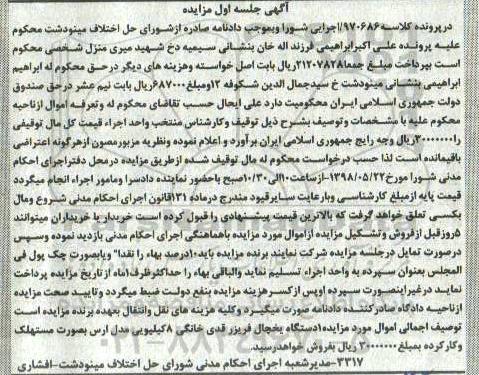 آگهی جلسه اول مزایده
در پرونده کلاسه ۹۷۰۶۸۶/اجرایی شورا وبموجب دادنامه صادره ازشورای حل اختلاف مینودشت محکوم
علیه پرونده علی اکبر ابراهیمی فرزند اله خان بنشانی سیمیه دخ شهید میری منزل شخصی محکوم
است بپرداخت مبلغ جمعا ۲۱۲۰۷۸۲۸ ریال بابت اصل خواسته وهزینه های دیگر درحق محکوم له ابراهیم
ابراهیمی بنشانی مینودشت خ سیدجمال الدین شکوفه ۱۲ ومبلغ ۶۸۷۰۰۰ ریال بابت نیم عشر در حق صندوق
دولت جمهوری اسلامی ایران محکومیت دارد علی ایحال حسب تقاضای محکوم له وتعرفه اموال ازناحیه
محکوم علیه با مشخصات وتوصیف بشرح ذیل توقیف وکارشناس منتخب واحد اجراء قیمت کل مال توقیفی
را ۳۰۰۰۰۰۰ ریال وجه رایج جمهوری اسلامی ایران برآورد و اعلام نموده ونظریه مزبورمصون ازهرگونه اعتراضی
باقیمانده است لذا حسب درخواست محکوم له مال توقیف شده ازطریق مزایده درمحل دفتراجرای احکام
مدنی شورا مورخ ۱۳۹۸/۰۵/۲۲-ازساعت ۱۰الی ۱۰/۳۰صبح باحضور نماینده دادسرا ومامور اجراء انجام میگردد
قیمت پایه ازمبلغ کارشناسی وبارعایت سایرقیود مندرج درماده ۱۳۱قانون اجرای احکام مدنی شروع ومال
بکسی تعلق خواهد گرفت که بالاترین قیمت پیشنهادی را قبول کرده است خریدار یا خریداران میتوانند
۵روزقبل ازفروش وتشکیل مزایده ازاموال مورد مزایده باهماهنگی اجرای احکام مدنی بازدید نموده وسپس
درصورت تمایل درجلسه مزایده شرکت نمایند برنده مزایده باید ۱۰درصد بهاء را نقدا" ویابصورت چک پول فی
المجلس بعنوان سپرده به واحد اجراء تسلیم نماید والباقی بهاء را حداکثرظرف ۱ماه از تاریخ مزایده پرداخت
نماید درغیراینصورت سپرده اوپس ازکسرهزینه مزایده بنفع دولت ضبط میگردد وتایید صحت مزایده
ازناحیه دادگاه صادرکننده دادنامه صورت میگیرد وکلیه هزینه های نقل وانتقال بعهده برنده مزایده است
توصیف اجمالی اموال مورد مزایده ۱دستگاه یخچال فریزر قدی خانگی ۸کیلویی مدل ارس بصورت مستهلک
وکارکرده بمبلغ ۳۰۰۰۰۰۰ ریال بفروش خواهدرسید.
۳۳۱۷-مدیرشعبه اجرای احکام مدنی شورای حل اختلاف مینودشت-افشاری